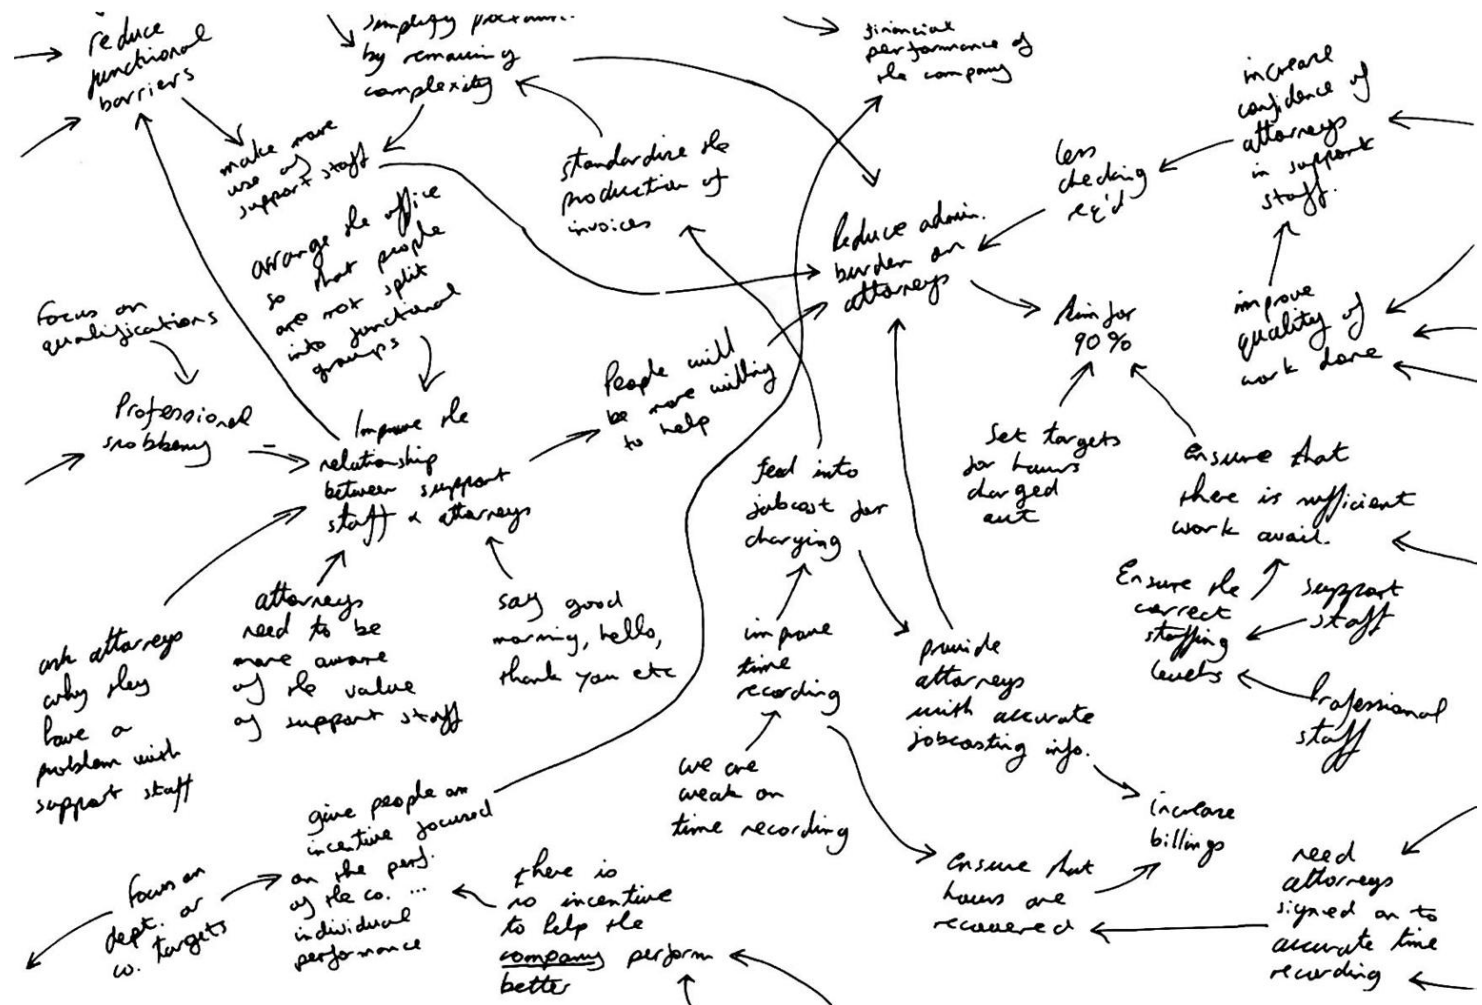 reduce
functional
barriers
simplify
by removing
complexity
financial
performance of
the company
increase
confidence of
attorneys
in support
staff.
make more
use of
support staff
standardize the
production of
invoices
less
checking
req'd
arrange the office
so that people
are not split
into functional
groups
Reduce admin.
burden on
attorneys
Focus on
qualifications
Aim for
90%
improve
quality of
work done
People will
be more willing
to help
Professional
snobbery
Improve the
relationship
between support
staff & attorneys
Set targets
for hours
charged
out
Ensure that
there is sufficient
work avail.
feed into
jobcost for
charging
Ensure the
correct
staffing
levels
support
staff
Professional
staff
ask attorneys
why they
have a
problem with
support staff
attorneys
need to be
more aware
of the value
of support staff
say good
morning, hello,
thank you etc
improve
time
recording
provide
attorneys
with accurate
jobcosting info.
we are
weak on
time recording
increase
billings
give people an
incentive focused
on the perf.
of the co. ...
individual
performance
Focus on
dept. or
co. targets
there is
no incentive
to help the
company perform
better
ensure that
hours are
recovered
need
attorneys
signed on to
accurate time
recording